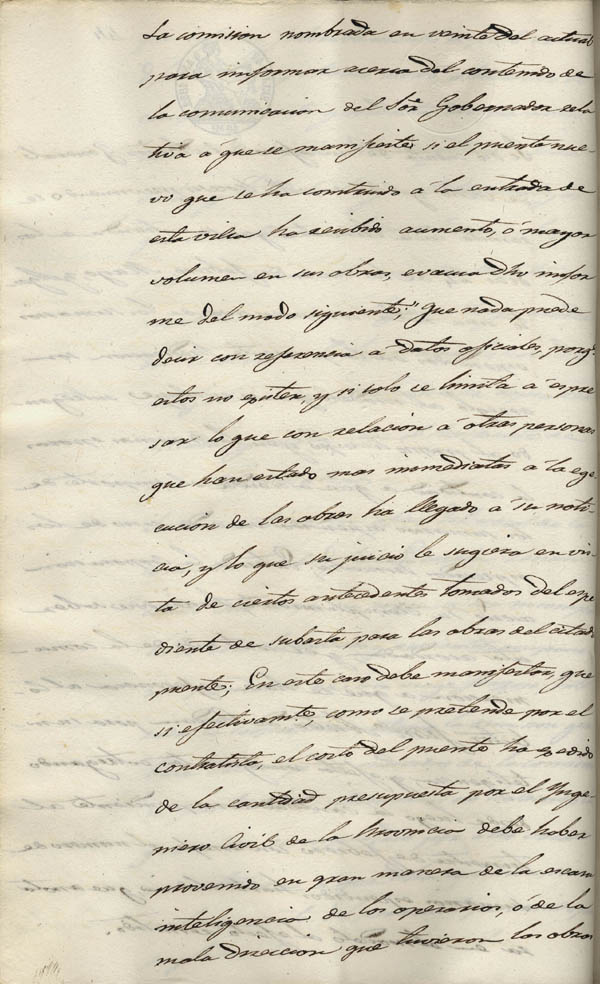 La comision nombrada en veinte del actual
para informar acerca del contenido de
la comunicacion del Sor Gobernador rela
tiva á que se manifieste si el puente nue
vo que se ha construido á la entrada de
esta villa ha recibido aumento, ó mayor
volumen en sus obras, evacua dho infor
me del modo siguiente; "Que nada puede
decir con referencia á datos oficiales, porq
estos no existen, y si solo se limita á espre
sar lo que con relacion á otras personas
que han estado mas immediatas á la ege-
cucion de las obras ha llegado á su noti
cia, y lo que su juicio le sugiera en vis
ta de ciertos antecedentes tomados del espe
diente de subasta para las obras del citado
puente; En este caso debe manifestar, que
si efectivamte, como se pretende por el
contratista, el costo del puente ha excedido
de la cantidad presupuesta por el Ynge-
niero Civil de la Provincia debe haber
provenido en gran manera de la escasa
inteligencia de los operarios, ó de la
mala direccion que tuvieron las obras